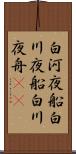 白河夜船白
川夜船白川
夜舟